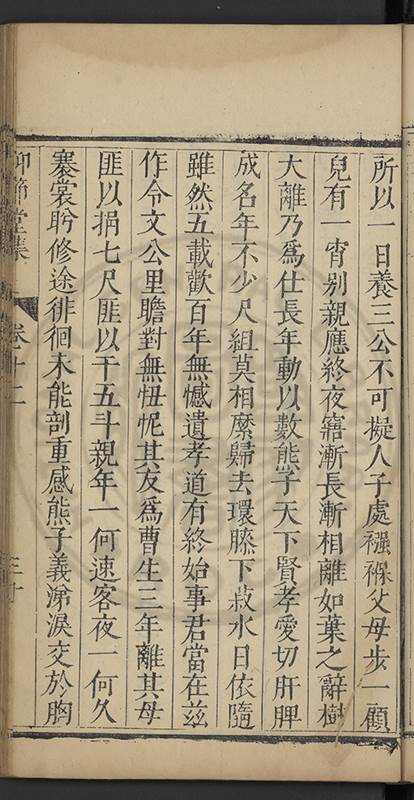 所以一日養三公不可擬人子處襁褓父母步一顧
兒有一宵别親應終夜寤漸長漸相離如葉之辭樹
大離乃爲仕長年動以數熊子天下賢孝愛切肝脾
成名年不少尺組莫相縻歸去環膝下菽水日依隨
雖然五載歡百年無憾遺孝道有終始事君當在兹
作令文公里瞻對無忸怩其友爲曹生三年離其母
匪以捐七尺匪以干五斗親年一何速客夜一何久
褰裳盻修途徘徊未能剖重感熊子義涕淚交於胸
仰節堂集
卷十二